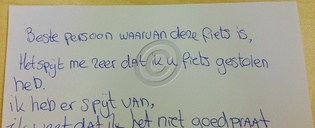 Beste persoon waarvan deze fiets is,
Het spijt me zeer dat ik u fiets gestolen
heb.
ik heb er spijt van,
ik weet dat ik het niet goed praat